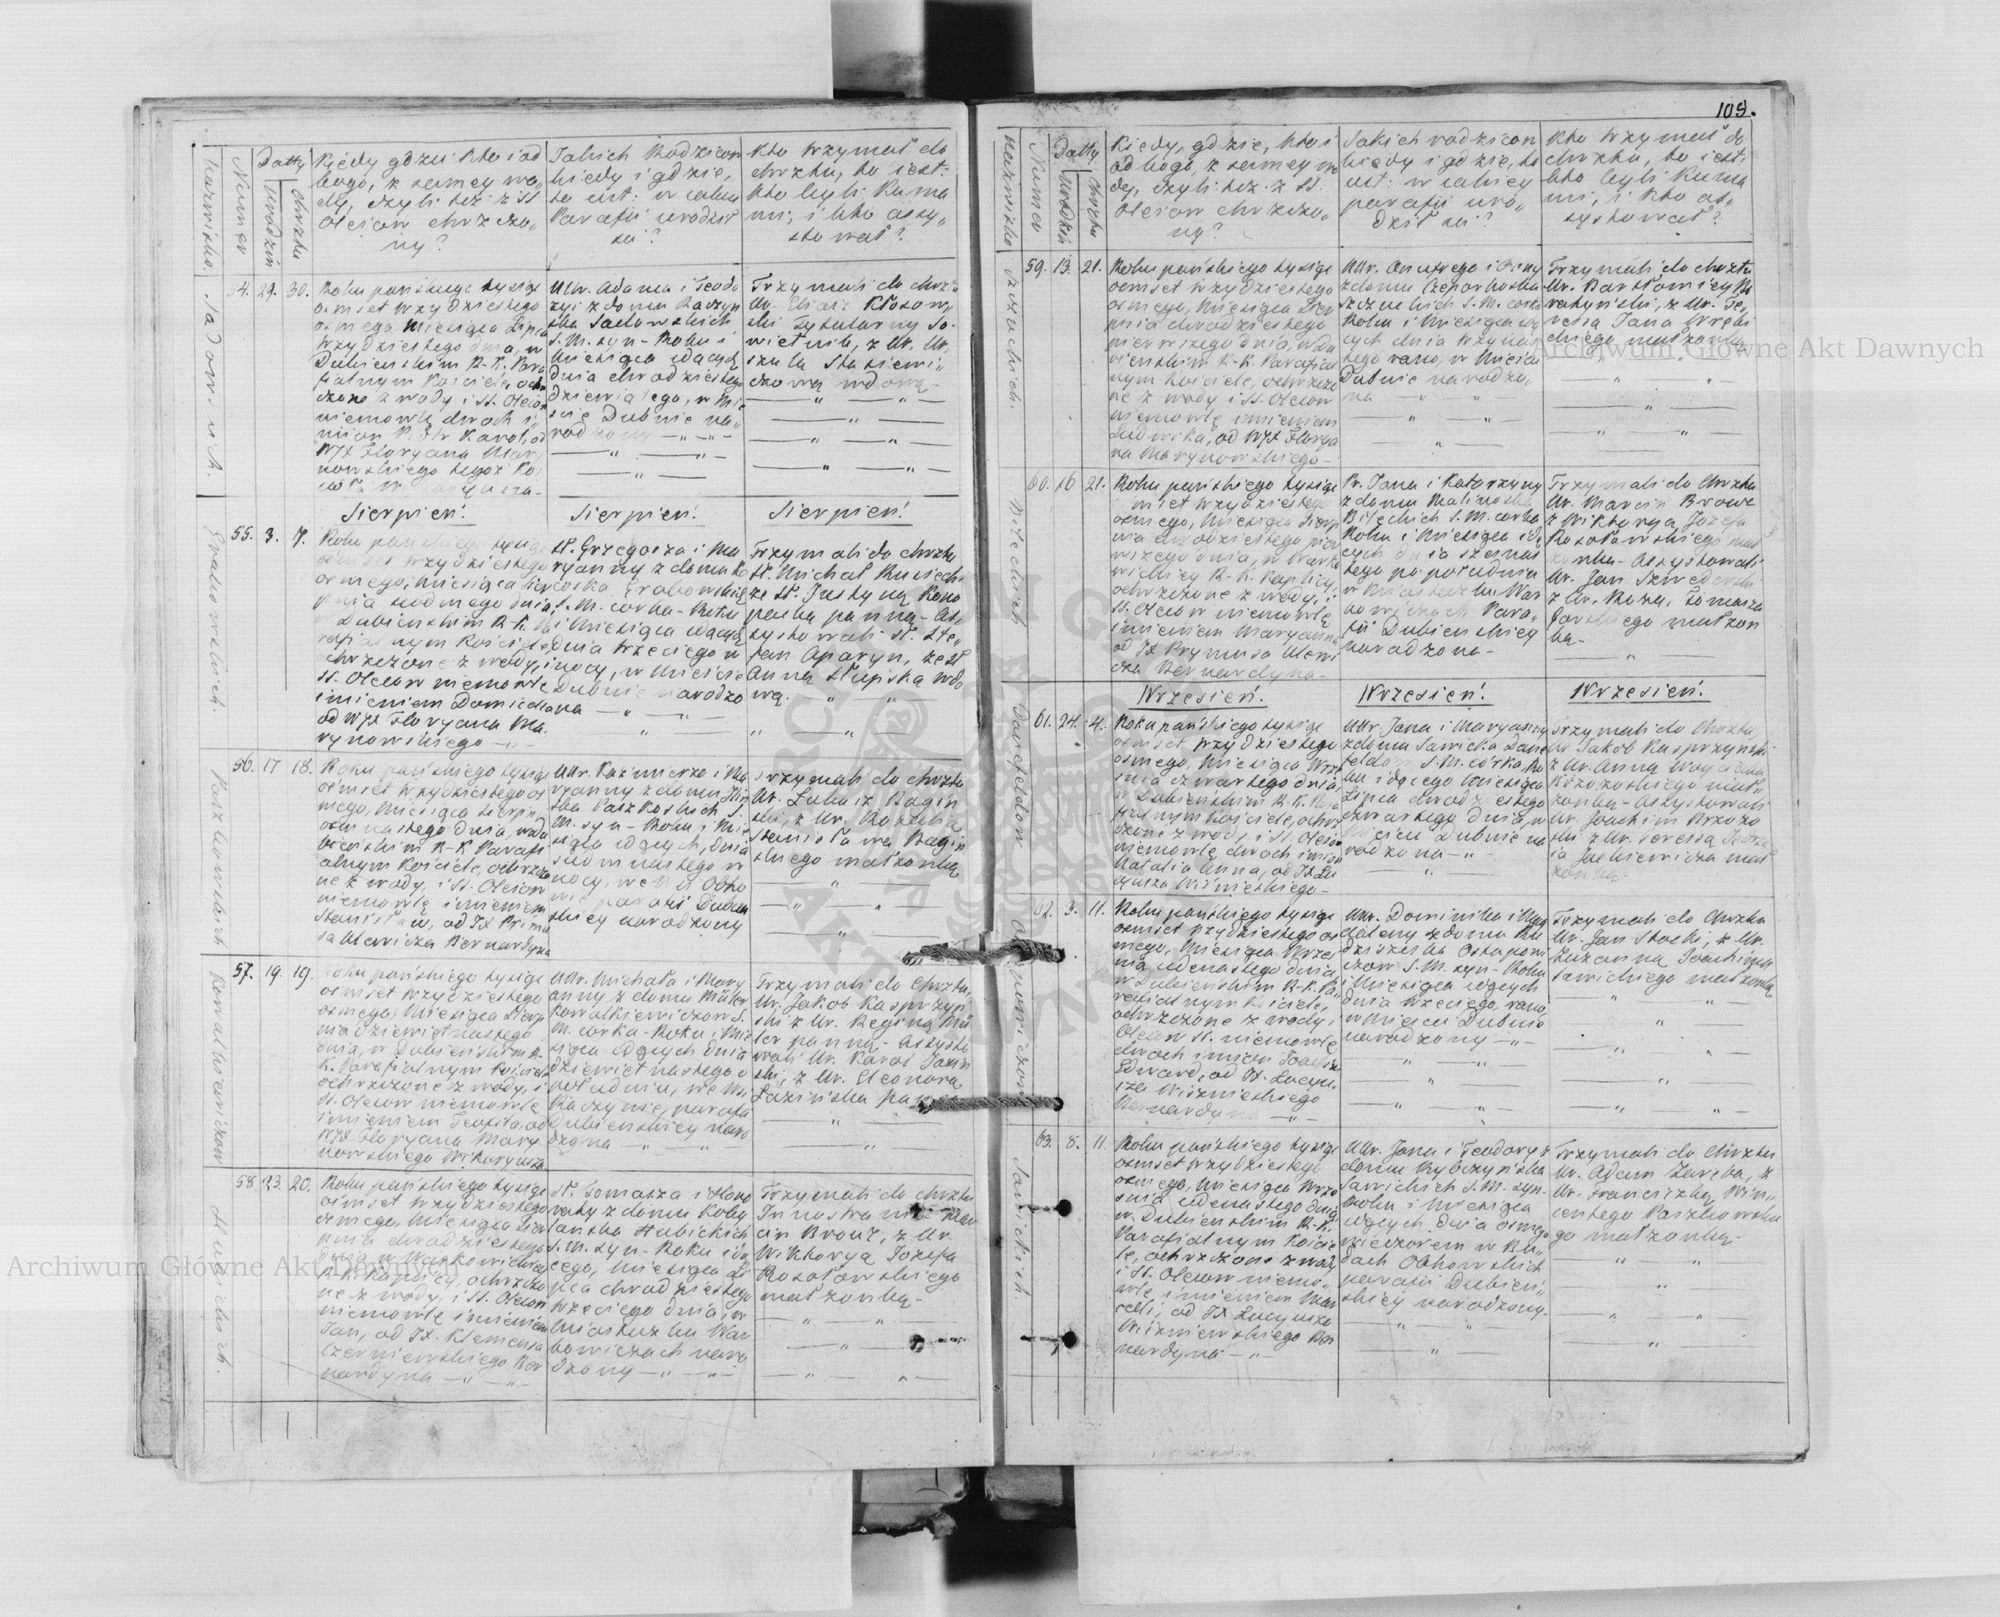 Nazwisko.
Numer
Datty
Urodzin
Chrztu
Kiedy gdzie kto i od
kogo, z samey wo„
dy, czyli też z SS.
Oleiow chrzczo„
ny?
Jakich Rodziców
kiedy i gdzie,
to iest: w iakiey
Parafii urodził
się?
Kto trzymał do
chrztu, to iest:
kto byli kuma
mi, i kto assy„
stował?
Sadowskich.
54. 29. 30.
Roku pańskiego tysiąc
osmset trzydziestego
osmego Miesiąca Lipca
trzydziestego dnia, w
Dubieńskim R-K. Para
fialnym Kościele ochrz
czone z wody i SS. Oleiow
niemowlę dwóch i„
mion Piotr Karol, od
WJX Floryana Mar„
nowskiego tegoż Ko„
Ur. Adama i Teodo
zyi z domu Raczyn
ska Sadowskich
S. M. syn - Roku i
Miesiąca idących
dnia dwudziestego
dziewiątego, w Mie
scie Dubnie na„
rodzony — „ — „ —
Trzymali do chrztu
Ur. Eliasz Kłosow„
ski Tytularny So„
wietnik, z Ur. Ur
szulą Stasiewi„
czową wdową —
Sierpień!
Sierpień!
Sierpień!
Grabowskich.
55. 3. 7.
Roku pańskiego tysiąc
osmset trzydziestego
osmego, Miesiąca Sier
pnia siodmego dnia
w Dubieńskim R-K. Pa
rafialnym Kościele
ochrzczone z wody, i
SS. Oleiow niemowle
imieniem Domicela
od WJX Floryana Ma„
rynowskiego — „ —
Sł. Grzegorza i Ma
ryanny z domu Ko
ńska Grabowskich
S. M. corka - Roku
i Miesiąca idących
dnia trzeciego w
nocy, w Mieście
Dubnie narodzo
na — „ — „ —
Trzymali do chrztu
Sł. Michał Rusiecki
ze Sł. Justyną Kono
packą panną - As„
systowali Sł. Ste„
fan Oparyn, ze Sł
Anną Słupską wdo
wą. „ „
Paszkowskich
56. 17 18.
Roku pańskiego tysiąc
osmset trzydziestego os
mego, Miesiąca Sierpn
osmnastego dnia, w Du
bieńskim R-K Parafi
alnym Kościele, ochrzczo
ne z wody, i SS. Oleiow
niemowlę imieniem
Stanisław, od JX Prim
sa Uteuicza Bernardyna
Ur. Kazimierza i Ma
ryanny z domu Ilin
ska Paszkoskich S.
M. syn - Roku i Mie
siąca idących, dnia
siedmnastego w
nocy, we wsi Ostro
wie parafii Dubień
skiey narodzony
Trzymali do chrztu
Ur. Łukasz Ragin
ski, z Ur. Rozalią
Stanisława Ragin
skiego małżonką
Kowalkiewiczow
57. 19. 19.
Roku pańskiego tysiąc
osmset trzydziestego
osmego, Miesiąca Sierp
nia dziewiętnastego
dnia, w Dubieńskim R-
K. Parafialnym Kościele
ochrzczone z wody, i
SS. Oleiow niemowlę
imieniem Teofila, od
WJX Floryana Mary„
nowskiego Wikaryusza
Ur. Michała i Mary
anny z domu Müler
Kowalkiewiczow S.
M. corka - Roku i Mie
siąca idących dnia
dziewiętnastego o
południu, we wsi
Raczynie, parafii
Dubieńskiey naro
dzona — „ — „ —
Trzymali do chrztu,
Ur. Jakob Kasprzyń
ski z Ur. Reginą Mü
ler panną - Assysto
wali Ur. Karol Łozin
ski, z Ur. Eleonorą
Łozińską panną
Hubickich.
58 23. 20.
Roku pańskiego tysiąc
osmset trzydziestego
osmego, Miesiąca Sier
pnia dwudziestego
dnia, w Warkowickiey
R-K. Kaplicy, ochrzczo
ne z wody, i SS. Oleiow
niemowlę imieniem
Jan, od JX. Klemensa
Czerniewskiego Ber
nardyna — „ — „ —
Sł. Tomasza i Hono
raty z domu Koby
lańska Hubickich
S. M. syn - Roku idą
cego, Miesiąca Li
pca dwudziestego
trzeciego dnia, w
Miasteczku War
kowiczach naro
dzony — „ — „ —
Trzymali do chrztu
Innostraniec Mar
cin Brouz, z Ur.
Wiktoryą Jozefa
Rosołowskiego
małżonką -
109.
Nazwisko
Numer
Datty
Urodzin
Chrztu
Kiedy, gdzie, kto i
od kogo, z samey wo
dy, czyli też z SS.
Oleiow chrzczo„
ny?
Jakich rodziców
kiedy i gdzie, to
iest: w iakiey
parafii uro„
dził się?
Kto trzymał do
chrztu, to iest:
kto byli kuma
mi, i kto as„
systował?
Szczuckich.
59. 13. 21.
Roku pańskiego tysiąc
osmset trzydziestego
osmego, Miesiąca Sier
pnia dwudziestego
pierwszego dnia, w Du
bieńskim R-K. Parafial
nym Kościele, ochrzczo
ne z wody i SS. Oleiow
niemowlę imieniem
Ludwika, od WJX Florya
na Marynowskiego -
Ur. Onufrego i Anny
z domu Czeporkoska
Szczuckich S. M. corka
Roku i Miesiąca idą
cych dnia trzynas
tego rano, w Mieście
Dubnie narodzo„
na — „ — „ —
Trzymali do chrztu
Ur. Bartłomiey Mo
ratyński, z Ur. Te„
ressą Jana Wrebi
ckiego małżonką
Bileckich
60. 16 21.
Roku pańskiego tysiąc
osmset trzydziestego
osmego, Miesiąca Sierp
nia dwudziestego pier
wszego dnia, w Warko
wickiey R-K. Kaplicy,
ochrzczone z wody, i
SS. Oleiow niemowlę
imieniem Maryanna
od JX Prymusa Uteui
cza Bernardyna -
Sł. Jana i Katarzyny
z domu Malinoska
Bileckich S. M. corka
Roku i Miesiąca idą
cych dnia szesnas
tego po południu
w Miasteczku War
kowiczach Para„
fii Dubieńskiey
narodzona -
Trzymali do chrztu
Ur. Marcin Brouz
z Wiktoryą Jozefa
Rosołowskiego mał
żonką - Assystowali
Ur. Jan Szwedoski
z Ur. Rozą, Tomasza
Gorskiego małżon
ką -
Wrzesień!
Wrzesień!
Wrzesień!
Danefeldow
61. 24. 4.
Roku pańskiego tysiąc
osmset trzydziestego
osmego, Miesiąca Wrze
snia czwartego dnia,
w Dubieńskim R-K. Para
fialnym Kościele, ochrz
czone z wody i SS. Oleiow
niemowlę dwoch imion
Natalia Anna, od JX Lu
cyusza Wiśnieskiego -
Ur. Jana i Maryanny
z domu Sawicka Dane
feldow S. M. córka, Ro
ku idącego Miesiąca
Lipca dwudziestego
czwartego dnia, w
Mieście Dubnie na
rodzona — „ —
Trzymali do chrztu,
Ur. Jakob Kasprzynski
z Ur. Anną Woyciecha
Brzozoskiego mał„
żonką - Assystowali
Ur. Joachim Brzozo
ski z Ur. Teressą
małżonką.
62. 3. 11.
Roku pańskiego tysiąc
osmset trzydziestego os
mego, Miesiąca Wrze„
nia iedenastego dnia,
w Dubieńskim R-K. Pa„
rafialnym Kościele,
ochrzczone z wody i
Oleiow SS. niemowlę
dwoch imion Joachim
Edward, od JX. Lucyu„
sza Wiśnieskiego
Bernardyna — „ —
Ur. Dominika i Mag
daleny z domu Ru
dziszeska Ostapowi
czow S. M. syn - Roku
i Miesiąca idących
dnia trzeciego, rano,
w Mieście Dubnie
narodzony — „ —
Trzymali do chrztu
Ur. Jan Stocki, z Ur.
Zuzanną Joachima
Sawickiego małżonką
Sawickich.
63. 8. 11
Roku pańskiego tysiąc
osmset trzydziestego
osmego, Miesiąca Wrze
snia iedenastego dnia
w Dubieńskim R-K.
Parafialnym Koście
le, ochrzczone z wody
i SS. Oleiow niemo„
wlę imieniem Mar
celli, od JX Lucyusza
Wiśniewskiego Ber
nardyna — „ —
Ur. Jana i Teodory z
domu Rybczyńska
Sawickich S. M. syn -
Roku i Miesiąca
idących dnia osmego
wieczorem w Bu„
dach Ostrowskich
parafii Dubień„
skiey narodzony -
Trzymali do chrztu
Ur. Adam Zaręba, z
Ur. Franciszką, Win„
centego Paszkowskie
go małżonką -
Archiwum Główne Akt Dawnych
Archiwum Główne Akt Dawnych